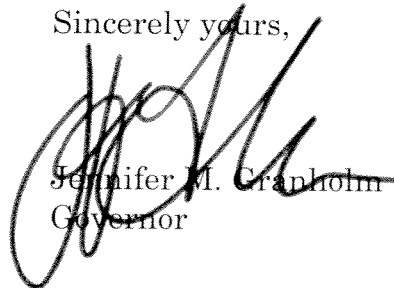 Sincerely yours,
Jennifer M. Granholm
Governor